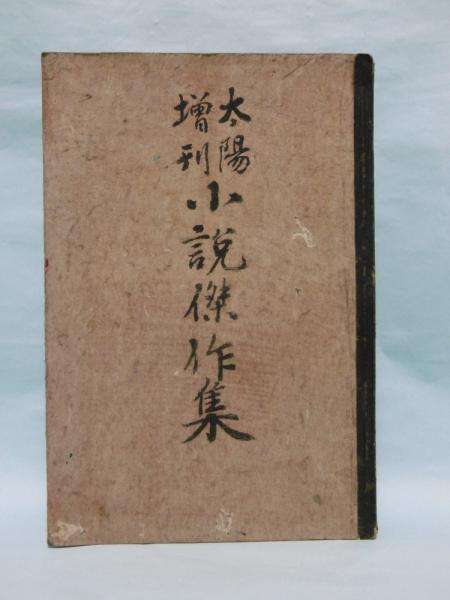 太陽
増刊
小説傑作集